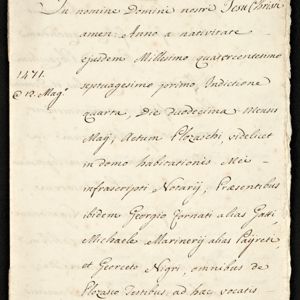 In nomine Domini nostri Jesu Christi
amen: Anno a nativitate
ejusdem Millesimo quatercentesimo
septuagesimo primo, Indictione
1471.
12. Mag.º
quarta, Die duodecima mensis
Maÿ; Actum Plozaschi videlicet
in domo habitationis Mei
infrascripti Notarÿ, Præsentibus
ibidem Georgio Cornati alias Gatti,
Michaele Marinerÿ alias Payresi
et Georceto Nigri, omnibus de
Plozasco Testibus, ad hac vocatis